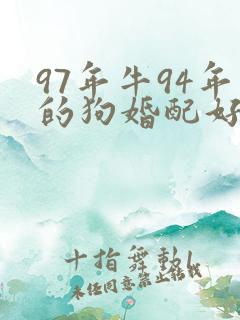 97年牛94年
的狗婚配好
十指舞动
未经同意禁止转载